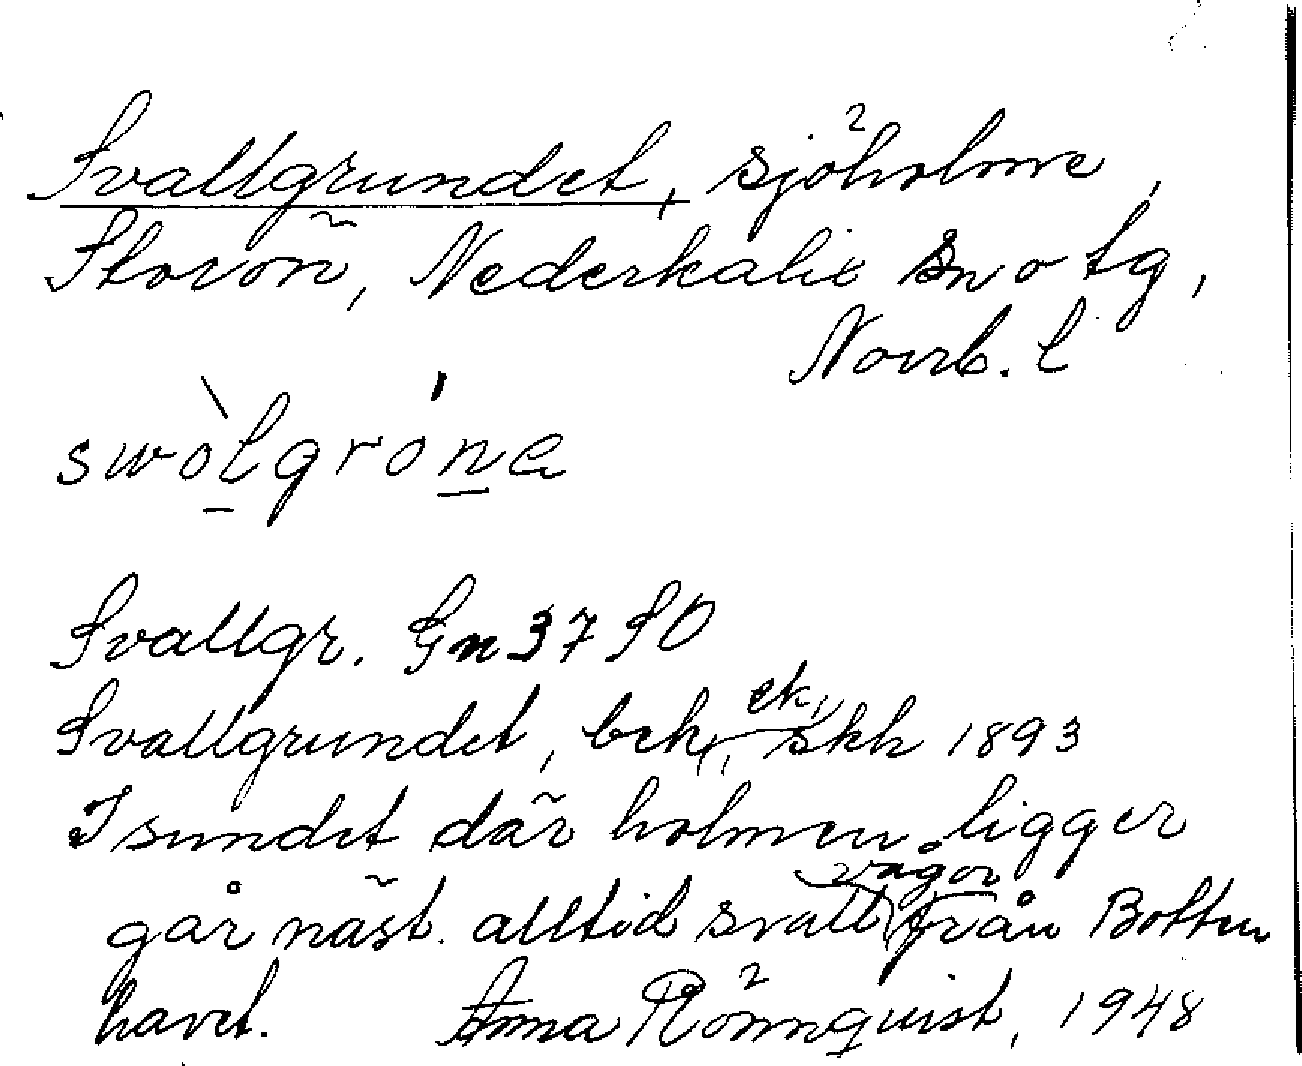 Svallgrundet, sjöholme,
Storön, Nederkalix sn o tg,
Norrb. l
swòlgróne
Svallgr. Gn 37 SO
Svallgrundet, bek, ek, skh 1893
I sundet där holmen ligger
går näst. alltid svallvågor från Botten
havet. Anna Rönnquist, 1948